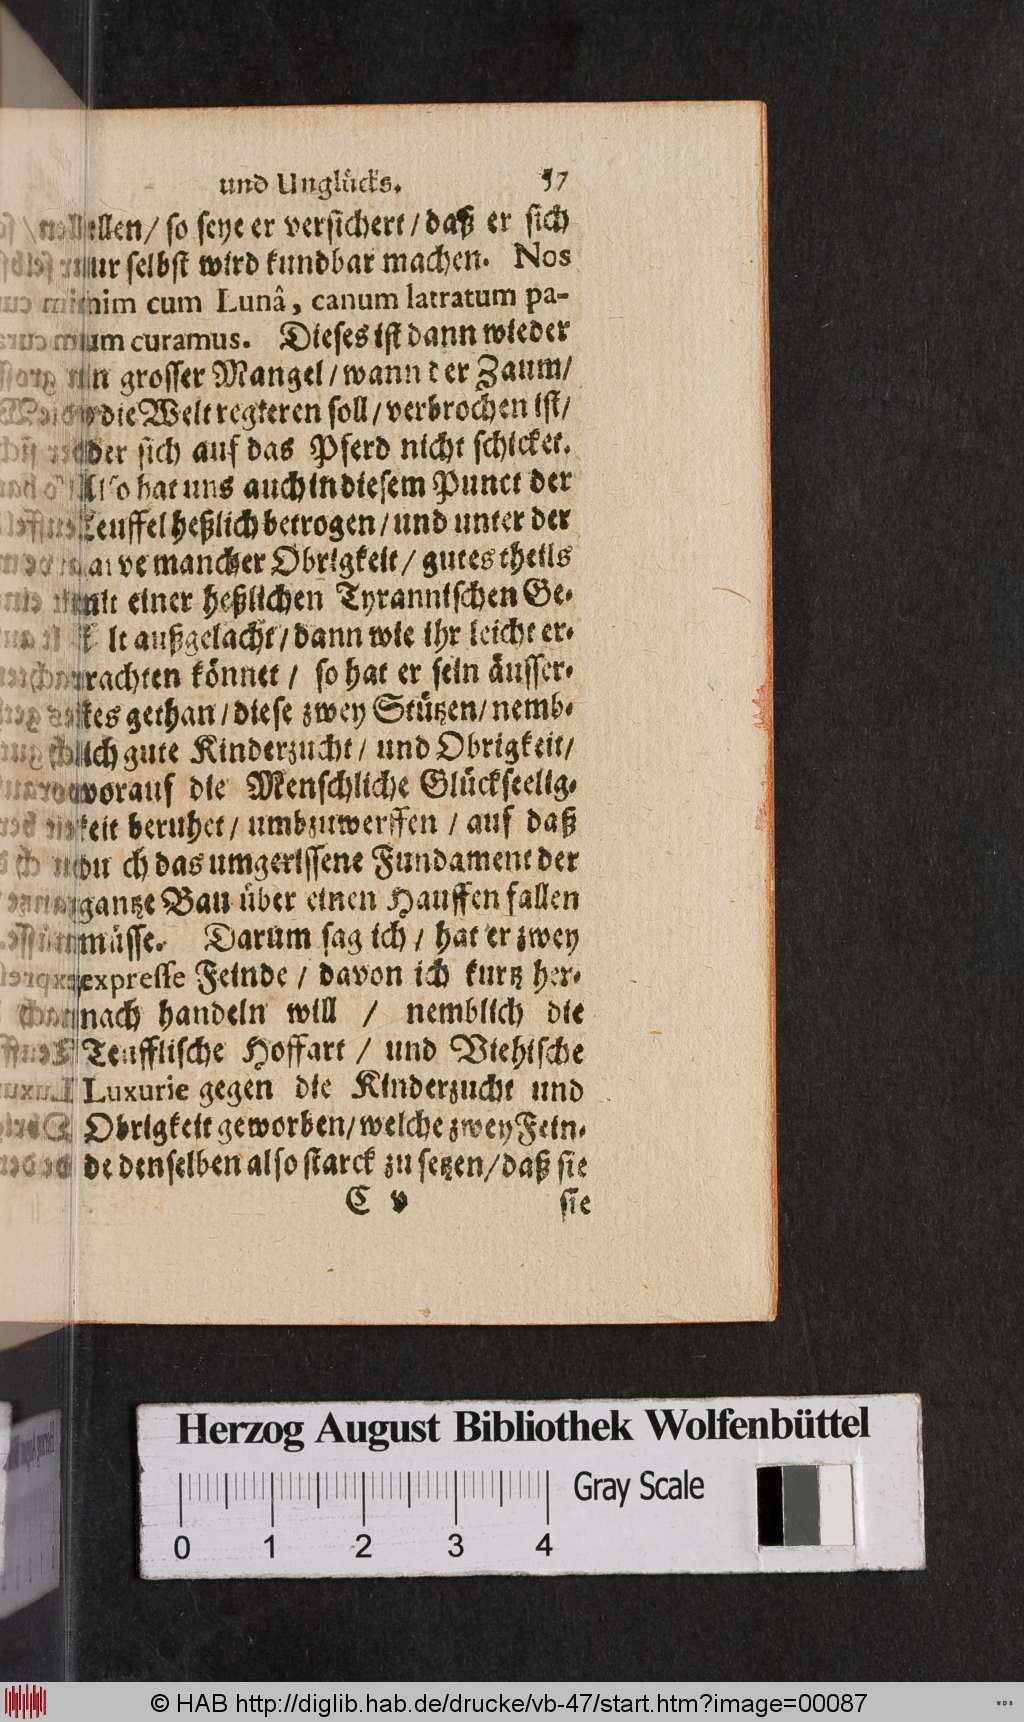 und Unglücks. 57
llen/ so seye er versichert/ daß er sich
nur selbst wird kundbar machen. Nos
nim cum Lunâ, canum latratum pa-
um curamus. Dieses ist dann wieder
n grosser Mangel/ wann der Zaum/
die Welt regieren soll/ verbrochen ist/
der sich auf das Pferd nicht schicket.
Also hat uns auch in diesem Punct der
Teuffel heßlich betrogen/ und unter der
Larve mancher Obrigkeit/ gutes theils
mit einer heßlichen Tyrannischen Ge-
lt außgelacht/ dann wie ihr leicht er-
rachten könnet/ so hat er sein äusser-
stes gethan/ diese zwey Stützen/ nemb-
lich gute Kinderzucht/ und Obrigkeit/
worauf die Menschliche Glückseelig-
keit beruhet/ umbzuwerffen/ auf daß
du ch das umgerissene Fundament der
gantze Bau über einen Hauffen fallen
müsse. Darum sag ich/ hat er zwey
expresse Feinde/ davon ich kurtz her-
nach handeln will/ nemblich die
Teufflische Hoffart/ und Viehische
Luxurie gegen die Kinderzucht und
Obrigkeit geworben/ welche zwey Fein-
de denselben also starck zu setzen/ daß sie
C v sie
Herzog August Bibliothek Wolfenbüttel
Gray Scale
0 1 2 3 4
© HAB http://diglib.hab.de/drucke/vb-47/start.htm?image=00087
WDB